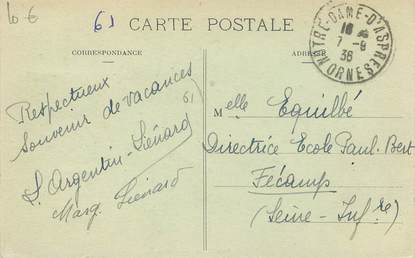 10 €
61
CARTE POSTALE
CORRESPONDANCE
ADRESSE
NOTRE-DAME-D'ASPRES
16
7-9
36
ORNE
Respectueux
souvenir de vacances
61
S. Argentin-Liénard
Marg. Liénard
Melle Equilbé
Directrice Ecole Paul-Bert
Fécamp
(Seine-Infre)